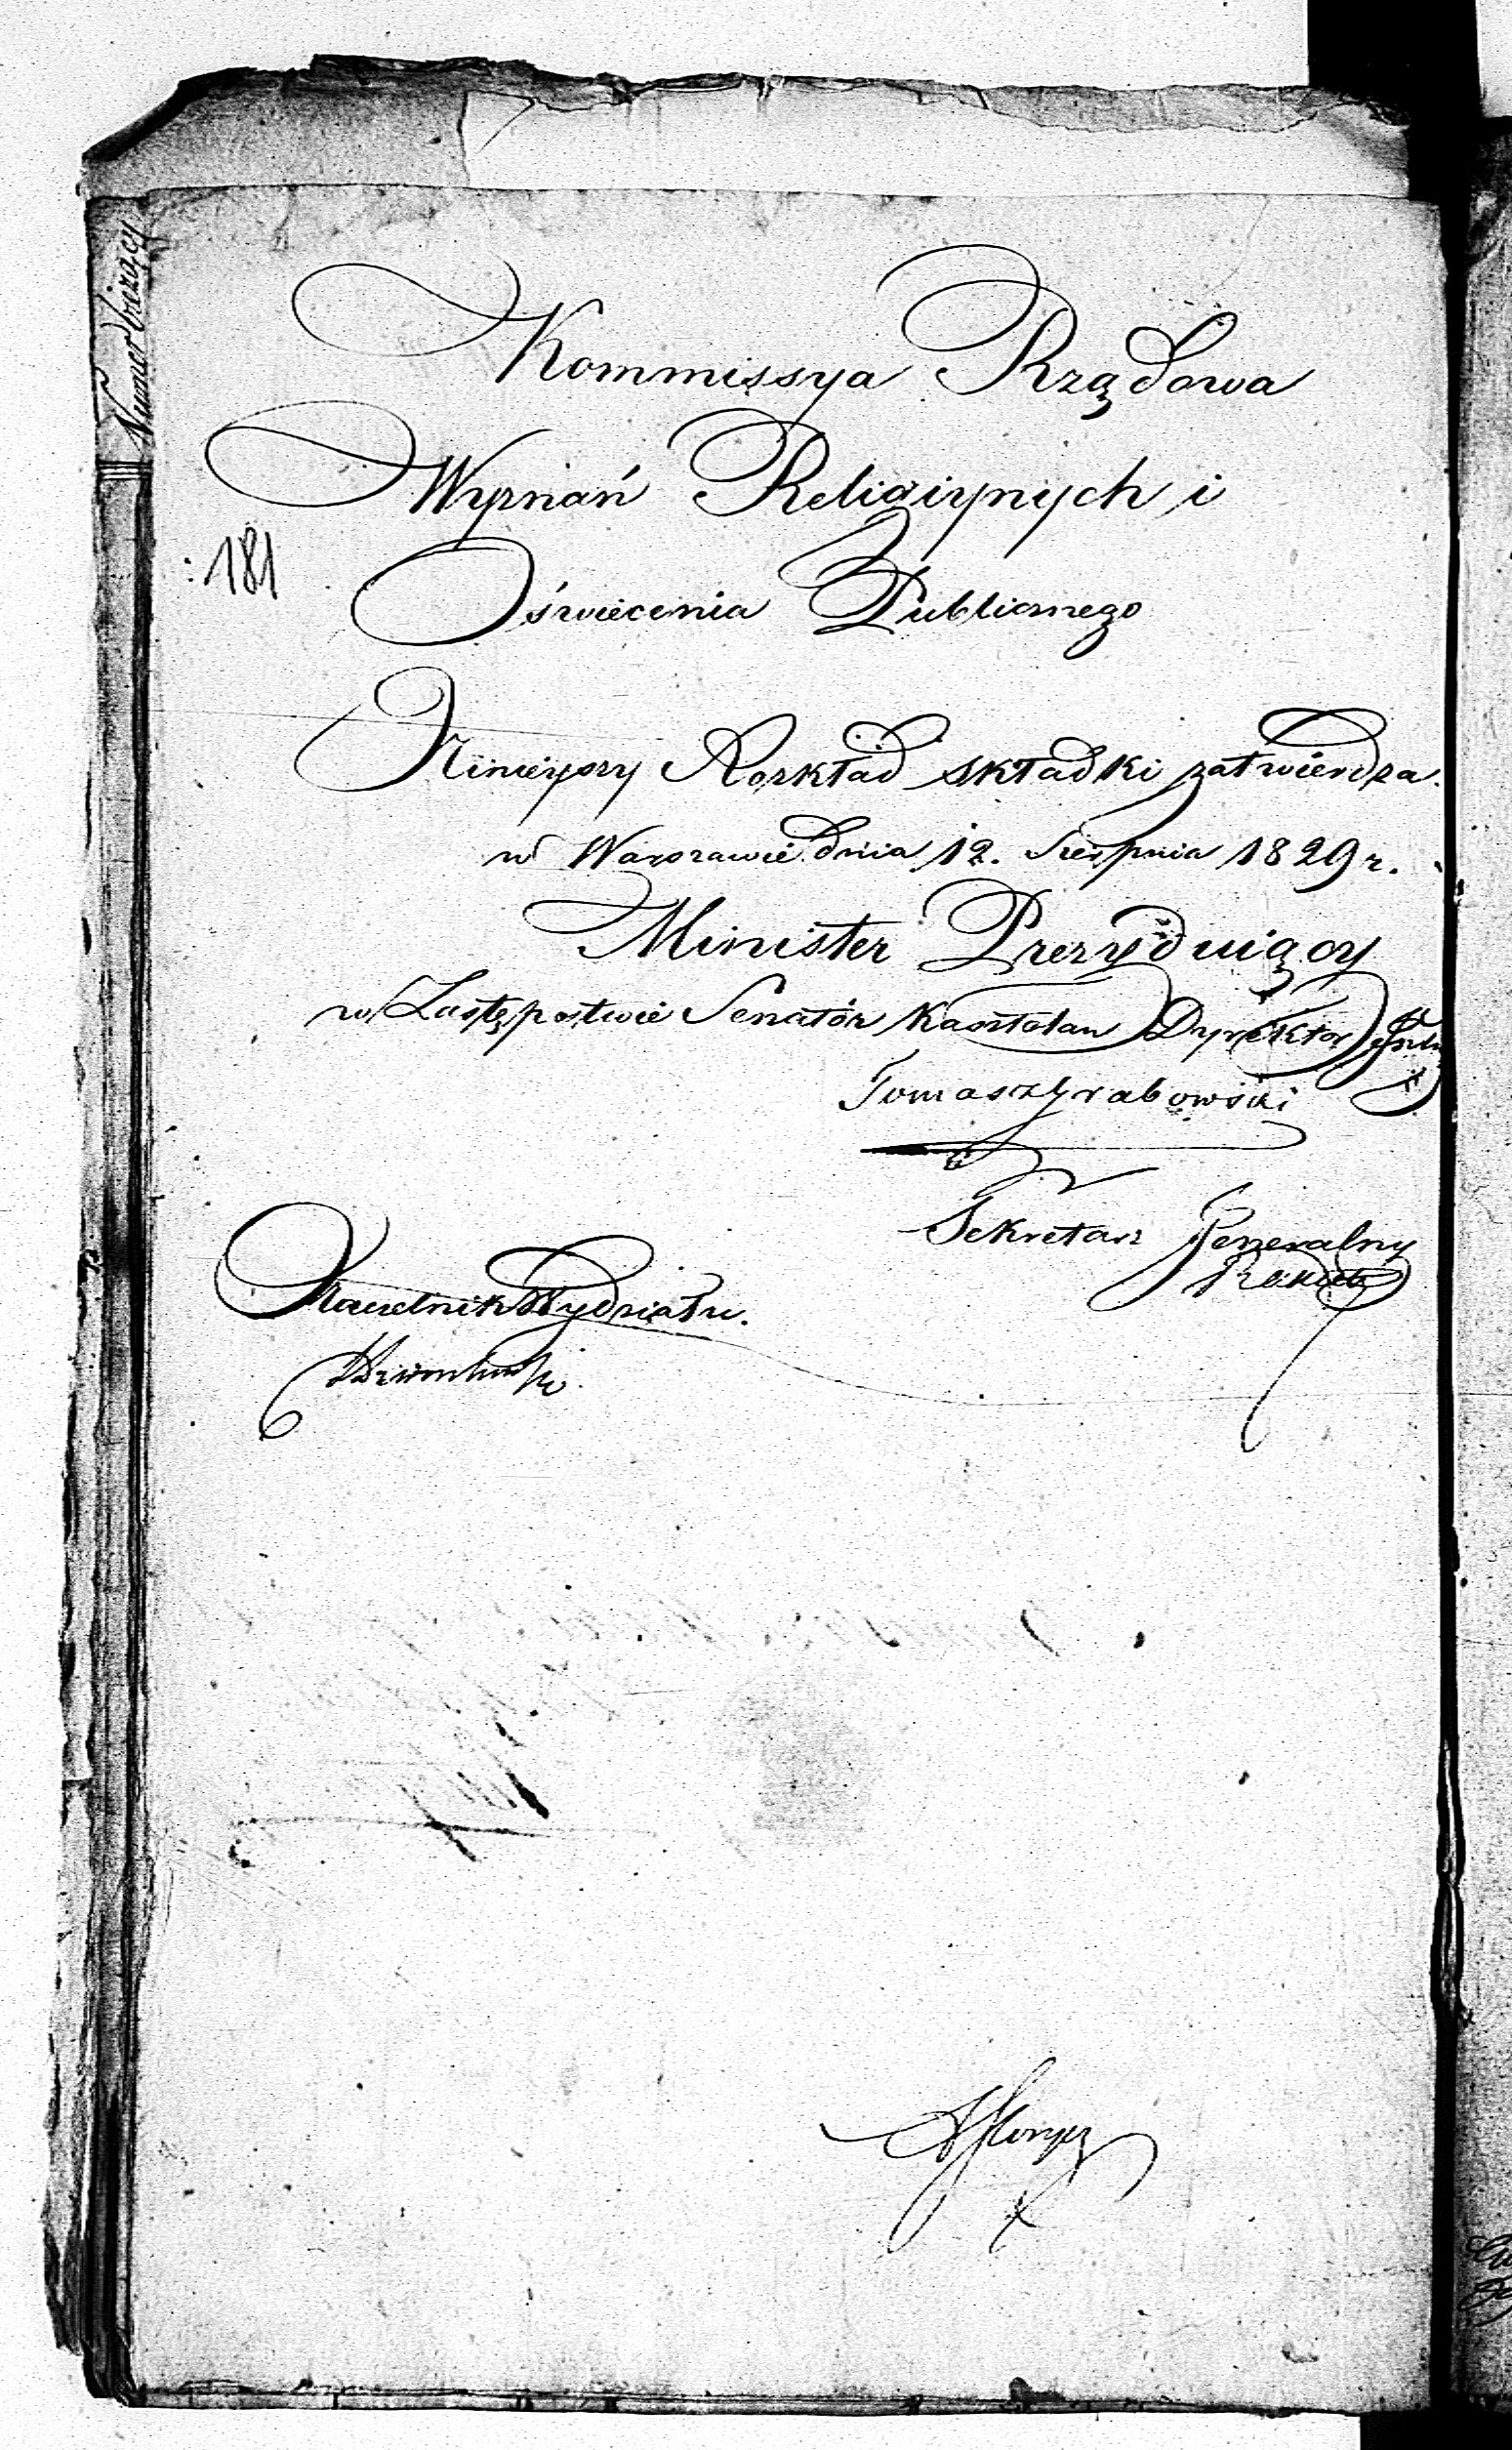 Numer bieżący
Kommissya Rządowa
Wyznań Religiynych i
:181
Oświecenia Publicznego
Ninieyszy Rozkład składki zatwierdza.
w Warszawie dnia 12. Sierpnia 1829 r.
Minister Prezyduiący
w Zastępstwie Senatór Kasztelan Dyrektor
Tomasz Grabowski
Sekretarz Generalny
Naczelnik Wydziału.